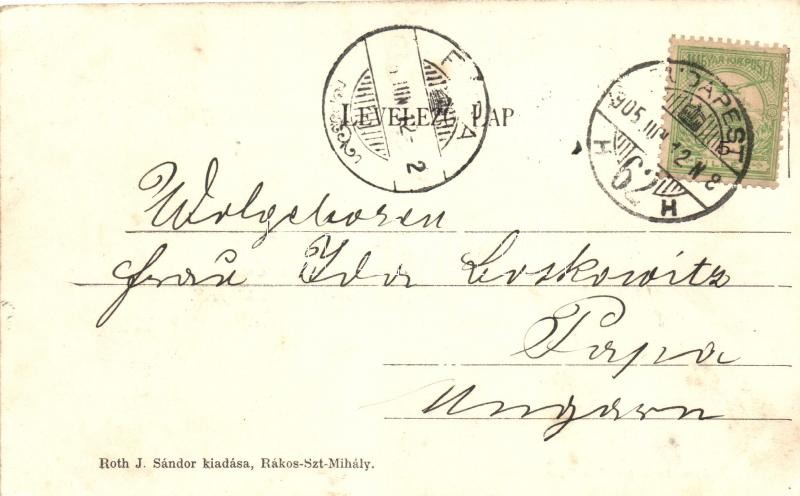 LEVELEZŐ LAP
MAGYAR KIR. POSTA
BUDAPEST
905 III 12 N 8
62
H H
PÁPA
Wolgeboren
Frau Ida Boskowitz
Papa
Ungarn
Roth J. Sándor kiadása, Rákos-Szt-Mihály.